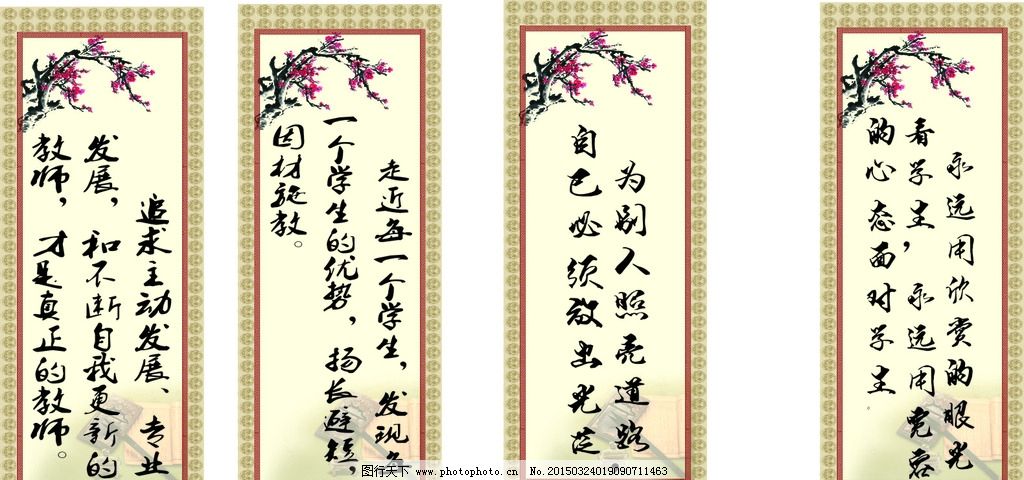 追求主动发展、专业
发展，和不断自我更新的
教师，才是真正的教师。
走近每一个学生，发现
一个学生的优势，扬长避短，
因材施教。
为别人照亮道路
自己必须放出光芒
永远用欣赏的眼光
看学生，永远用宽容
的心态面对学生。
图行天下 www.photophoto.cn No.20150324019090711463